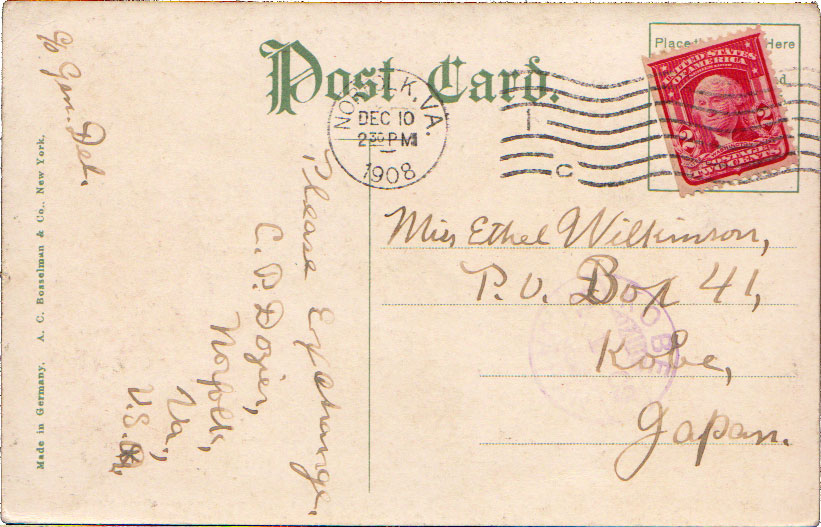 Post Card.
Place the Here
d.
UNITED STATES
OF AMERICA
2 2
POSTAGE
TWO CENTS
NORFOLK, VA.
DEC 10
2 30 PM
1908
C
Miss Ethel Wilkinson,
P.O. Box 41,
Kobe,
Japan.
KOBE
Please Exchange.
C. P. Dozier,
Norfolk,
Va.,
U.S.A.
c/o Gen. Del.
Made in Germany. A. C. Bosselman & Co., New York.